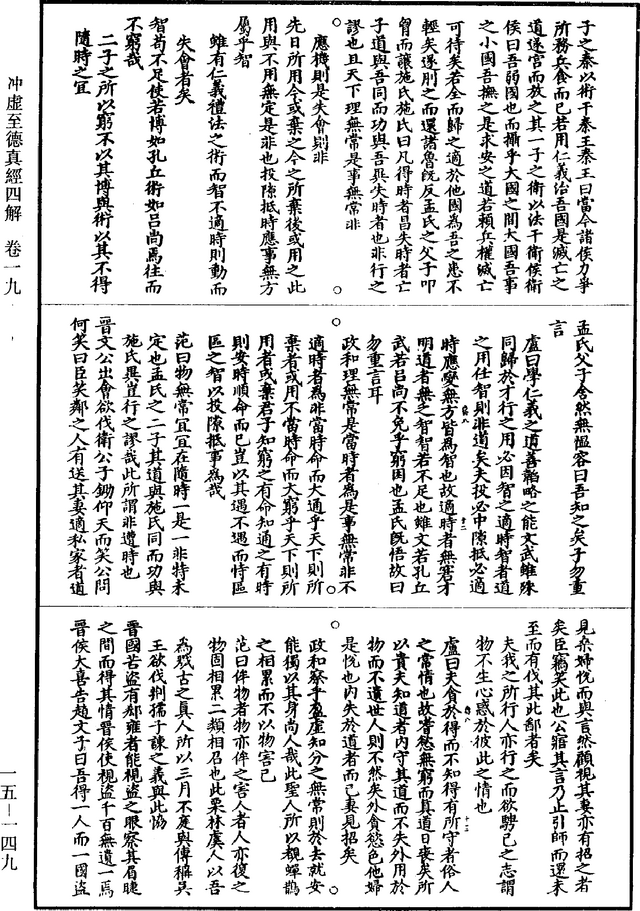 冲虛至德真經四解　卷一九
一五—一四九
子之秦以術干秦王秦王曰當今諸侯力爭
所務兵食而已若用仁義治吾國是滅亡之
道遂宮而放之其一子之衛以法干衛侯衛
侯曰吾弱國也而攝乎大國之間大國吾事
之小國吾撫之是求安之道若賴兵權滅亡
可待矣若全而歸之適於他國為吾之患不
輕矣遂刖之而還諸魯既反孟氏之父子叩
胷而讓施氏施氏曰凡得時者昌失時者亡
子道與吾同而功與吾異失時者也非行之
謬也且天下理無常是事無常非
應機則是失會則非
先日所用今或棄之今之所棄後或用之此
用與不用無定是非也投隙抵時應事無方
屬乎智
雖有仁義禮法之術而智不適時則動而
失會者矣
智苟不足使若博如孔丘術如呂尚焉往而
不窮哉
二子之所以窮不以其博與術以其不得
隨時之宜
孟氏父子舍然無愠容曰吾知之矣子勿重
言
盧曰學仁義之道善韜略之能文武雖殊
同歸於才行之用必因智之適時智者道
之用任智則非道矣夫投必中隙抵必適
時應變無方皆為智也故適時者無窘才
明道者無乏智智若不足也雖文若孔丘
武若呂尚不免乎窮困也孟氏既悟故曰
勿重言耳
政和理無常是當時者為是事無常非不
適時者為非當時命而大通乎天下則所
棄者或用不當時命而大窮乎天下則所
用者或棄君子知窮之有命知通之有時
則安時順命而已豈以其遇不遇而恃區
區之智以投隙抵事為哉
范曰物無常宜宜在隨時一是一非特未
定也孟氏之二子其道與施氏同而功與
施氏異豈行之謬哉此所謂非遭時也
晉文公出會欲伐衛公子鋤仰天而笑公問
何笑曰臣笑鄰之人有送其妻適私家者道
見桑婦悅而與言然顧視其妻亦有招之者
矣臣竊笑此也公寤其言乃止引師而還未
至而有伐其北鄙者矣
夫我之所行人亦行之而欲騁己之志謂
物不生心惑於彼此之情也
盧曰夫貪於得而不知得有所守者俗人
之常情也故嗜慾無窮而真道日喪矣所
以貴夫知道者內守其道而不失外用於
物而不遺世人則不然矣外貪慾色他婦
是悅也內失於道者而已妻見招矣
政和察乎盈虛知分之無常則於去就安
能獨以其身尚人哉此聖人所以觀蟬鵲
之相累而不以物害己
范曰侔物者物亦侔之害人者人亦復之
物固相累二類相召也此栗林虞人以吾
為戮古之真人所以三月不庭與傳稱吳
王欲伐荆孺子諫之義與此協
晉國苦盜有郄雍者能視盜之眼察其眉睫
之間而得其情晉侯使視盜千百無遺一焉
晉侯大喜告趙文子曰吾得一人而一國盜